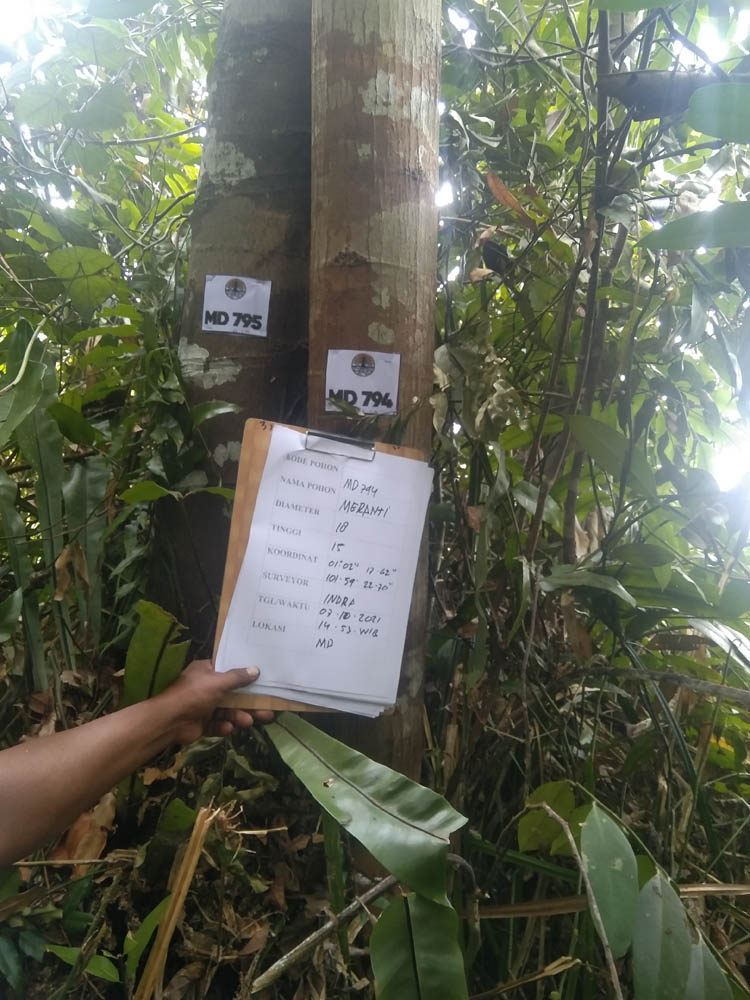 MD 795
MD 794
KODE POHON MD 794
NAMA POHON MERANTI
DIAMETER 18
TINGGI 15
KOORDINAT 01°02" 17.62"
101.59 22.70"
SURVEYOR INDRA
TGL/WAKTU 07.10.2021
14.53.WIB
LOKASI MD